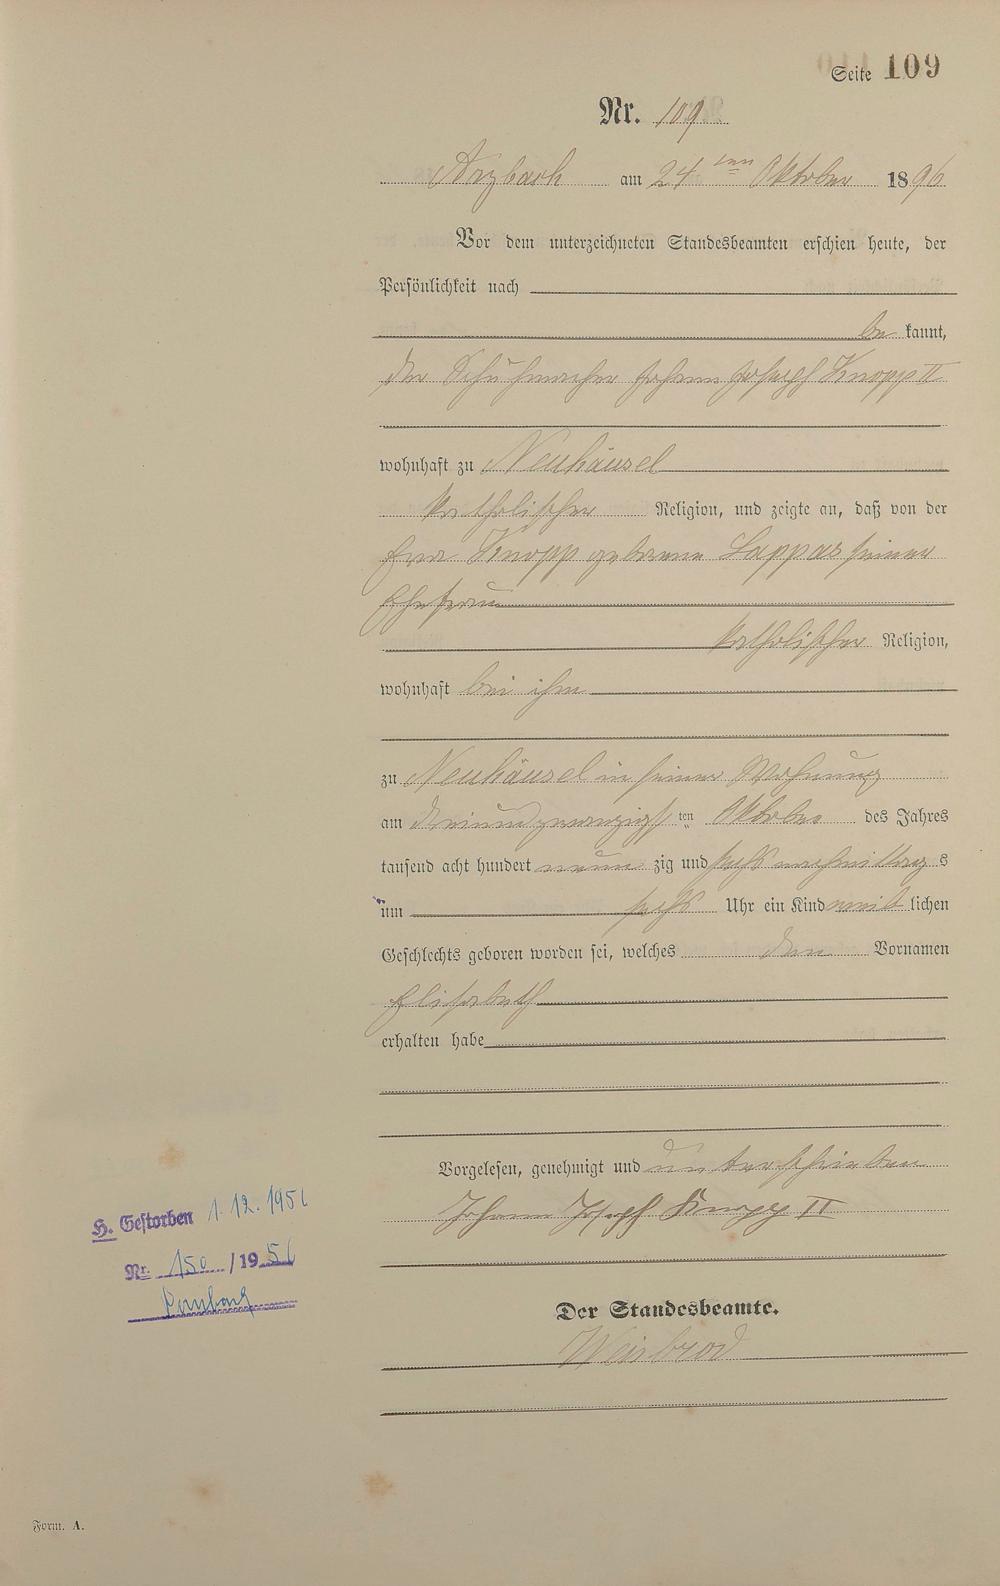 Seite 109
Nr. 109
Arzbach am 24 ten Oktober 1896
Vor dem unterzeichneten Standesbeamten erschien heute, der
Persönlichkeit nach
be kannt,
der Schuhmacher Johann Joseph Knopp II
wohnhaft zu Neuhäusel
katholischer Religion, und zeigte an, daß von der
Eva Knopp geborene Lappas seiner
Ehefrau
katholischer Religion,
wohnhaft bei ihm
zu Neuhäusel in seiner Wohnung
am dreiundzwanzigsten ten Oktober des Jahres
tausend acht hundert neun zig und sechs nachmittag s
um sechs Uhr ein Kind weib lichen
Geschlechts geboren worden sei, welches den Vornamen
Elisabeth
erhalten habe
Vorgelesen, genehmigt und unterschrieben
Johann Joseph Knopp II
H. Gestorben 1.12.1956
Nr. 150 / 1956
Der Standesbeamte.
Weisbrod
Form. A.